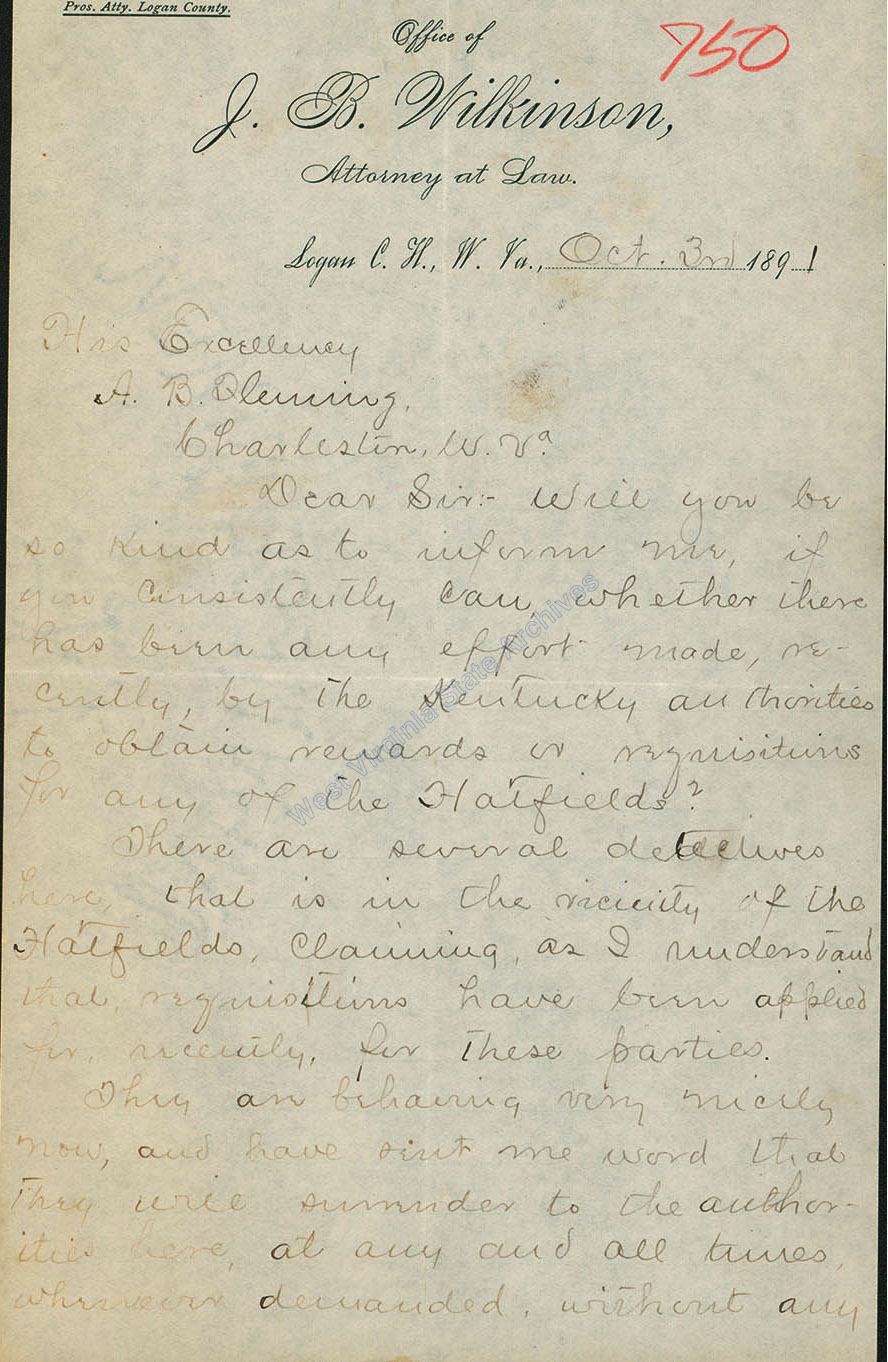 Pros. Atty. Logan County.
750
Office of
J. B. Wilkinson,
Attorney at Law.
Logan C. H., W. Va., Oct. 3rd 1891
His Excellency
A. B. Fleming,
Charleston, W. Va.
Dear Sir:- Will you be
so kind as to inform me, if
you consistently can, whether there
has been any effort made, re-
cently, by the Kentucky authorities
to obtain rewards or requisitions
for any of the Hatfields?
There are several detectives
here, that is in the vicinity of the
Hatfields, claiming, as I understand
that, requisitions have been applied
for, recently, for these parties.
They are behaving very nicely
now, and have sent me word that
they will surrender to the author-
ities here, at any and all times,
whenever demanded, without any
West Virginia State Archives